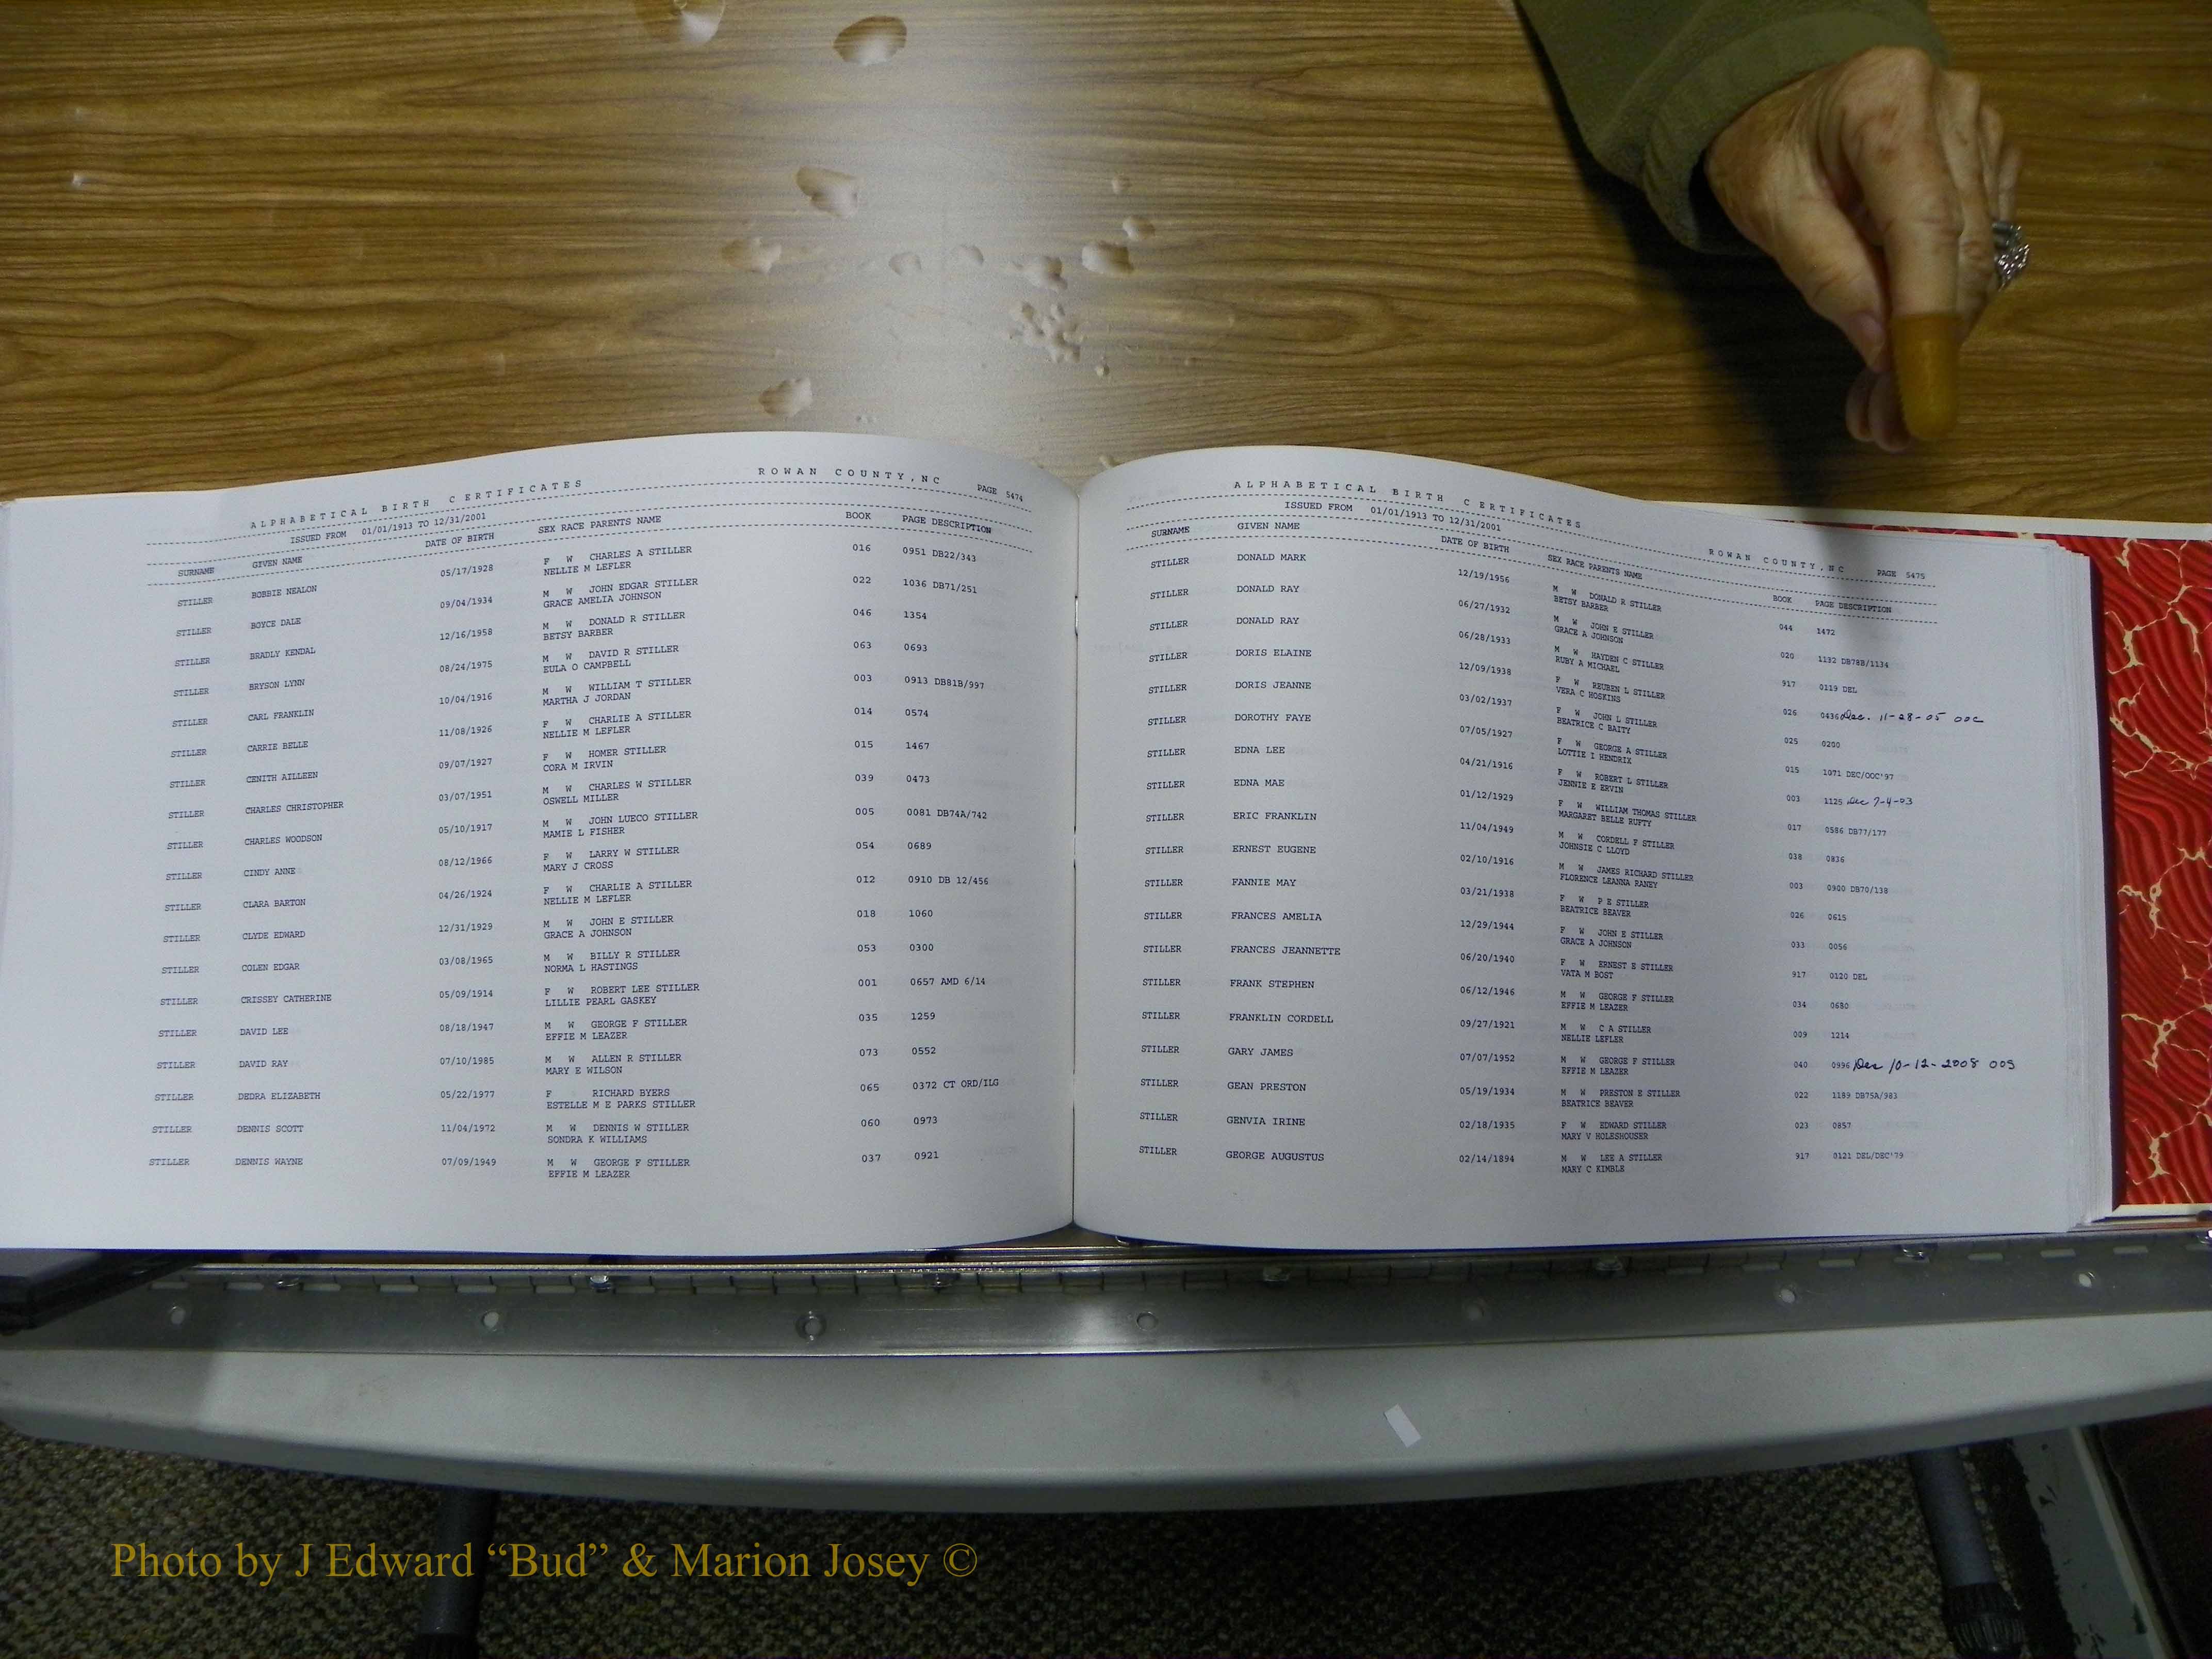 ALPHABETICAL BIRTH CERTIFICATES ROWAN COUNTY,NC PAGE 5474
ISSUED FROM 01/01/1913 TO 12/31/2001
SURNAME GIVEN NAME DATE OF BIRTH SEX RACE PARENTS NAME BOOK PAGE DESCRIPTION
STILLER BOBBIE NEALON 05/17/1928 F W CHARLES A STILLER 016 0951 DB22/343
NELLIE M LEFLER
STILLER BOYCE DALE 09/04/1934 M W JOHN EDGAR STILLER 022 1036 DB71/251
GRACE AMELIA JOHNSON
STILLER BRADLY KENDAL 12/16/1958 M W DONALD R STILLER 046 1354
BETSY BARBER
STILLER BRYSON LYNN 08/24/1975 M W DAVID R STILLER 063 0693
EULA O CAMPBELL
STILLER CARL FRANKLIN 10/04/1916 M W WILLIAM T STILLER 003 0913 DB81B/997
MARTHA J JORDAN
STILLER CARRIE BELLE 11/08/1926 F W CHARLIE A STILLER 014 0574
NELLIE M LEFLER
STILLER CENITH AILLEEN 09/07/1927 F W HOMER STILLER 015 1467
CORA M IRVIN
STILLER CHARLES CHRISTOPHER 03/07/1951 M W CHARLES W STILLER 039 0473
OSWELL MILLER
STILLER CHARLES WOODSON 05/10/1917 M W JOHN LUECO STILLER 005 0081 DB74A/742
MAMIE L FISHER
STILLER CINDY ANNE 08/12/1966 F W LARRY W STILLER 054 0689
MARY J CROSS
STILLER CLARA BARTON 04/26/1924 F W CHARLIE A STILLER 012 0910 DB 12/456
NELLIE M LEFLER
STILLER CLYDE EDWARD 12/31/1929 M W JOHN E STILLER 018 1060
GRACE A JOHNSON
STILLER COLEN EDGAR 03/08/1965 M W BILLY R STILLER 053 0300
NORMA L HASTINGS
STILLER CRISSEY CATHERINE 05/09/1914 F W ROBERT LEE STILLER 001 0657 AMD 6/14
LILLIE PEARL GASKEY
STILLER DAVID LEE 08/18/1947 M W GEORGE F STILLER 035 1259
EFFIE M LEAZER
STILLER DAVID RAY 07/10/1985 M W ALLEN R STILLER 073 0552
MARY E WILSON
STILLER DEDRA ELIZABETH 05/22/1977 F RICHARD BYERS 065 0372 CT ORD/ILG
ESTELLE M E PARKS STILLER
STILLER DENNIS SCOTT 11/04/1972 M W DENNIS W STILLER 060 0973
SONDRA K WILLIAMS
STILLER DENNIS WAYNE 07/09/1949 M W GEORGE F STILLER 037 0921
EFFIE M LEAZER
ALPHABETICAL BIRTH CERTIFICATES ROWAN COUNTY,NC PAGE 5475
ISSUED FROM 01/01/1913 TO 12/31/2001
SURNAME GIVEN NAME DATE OF BIRTH SEX RACE PARENTS NAME BOOK PAGE DESCRIPTION
STILLER DONALD MARK 12/19/1956 M W DONALD R STILLER 044 1472
BETSY BARBER
STILLER DONALD RAY 06/27/1932 M W JOHN E STILLER 020 1132 DB78B/1134
GRACE A JOHNSON
STILLER DONALD RAY 06/28/1933 M W HAYDEN C STILLER 917 0119 DEL
RUBY A MICHAEL
STILLER DORIS ELAINE 12/09/1938 F W REUBEN L STILLER 026 0436 Dec. 11-28-05 OOC
VERA C HOSKINS
STILLER DORIS JEANNE 03/02/1937 F W JOHN L STILLER 025 0200
BEATRICE C BAITY
STILLER DOROTHY FAYE 07/05/1927 F W GEORGE A STILLER 015 1071 DEC/OOC'97
LOTTIE I HENDRIX
STILLER EDNA LEE 04/21/1916 F W ROBERT L STILLER 003 1125 Dec 7-4-03
JENNIE E ERVIN
STILLER EDNA MAE 01/12/1929 F W WILLIAM THOMAS STILLER 017 0586 DB77/177
MARGARET BELLE RUFTY
STILLER ERIC FRANKLIN 11/04/1949 M W CORDELL F STILLER 038 0836
JOHNSIE C LLOYD
STILLER ERNEST EUGENE 02/10/1916 M W JAMES RICHARD STILLER 003 0900 DB70/138
FLORENCE LEANNA RANEY
STILLER FANNIE MAY 03/21/1938 F W P E STILLER 026 0615
BEATRICE BEAVER
STILLER FRANCES AMELIA 12/29/1944 F W JOHN E STILLER 033 0056
GRACE A JOHNSON
STILLER FRANCES JEANNETTE 06/20/1940 F W ERNEST E STILLER 917 0120 DEL
VATA M BOST
STILLER FRANK STEPHEN 06/12/1946 M W GEORGE F STILLER 034 0680
EFFIE M LEAZER
STILLER FRANKLIN CORDELL 09/27/1921 M W C A STILLER 009 1214
NELLIE LEFLER
STILLER GARY JAMES 07/07/1952 M W GEORGE F STILLER 040 0996 Dec 10-12-2008 OOS
EFFIE M LEAZER
STILLER GEAN PRESTON 05/19/1934 M W PRESTON E STILLER 022 1189 DB75A/983
BEATRICE BEAVER
STILLER GENVIA IRINE 02/18/1935 F W EDWARD STILLER 023 0857
MARY V HOLESHOUSER
STILLER GEORGE AUGUSTUS 02/14/1894 M W LEE A STILLER 917 0121 DEL/DEC'79
MARY C KIMBLE
Photo by J Edward “Bud” & Marion Josey ©